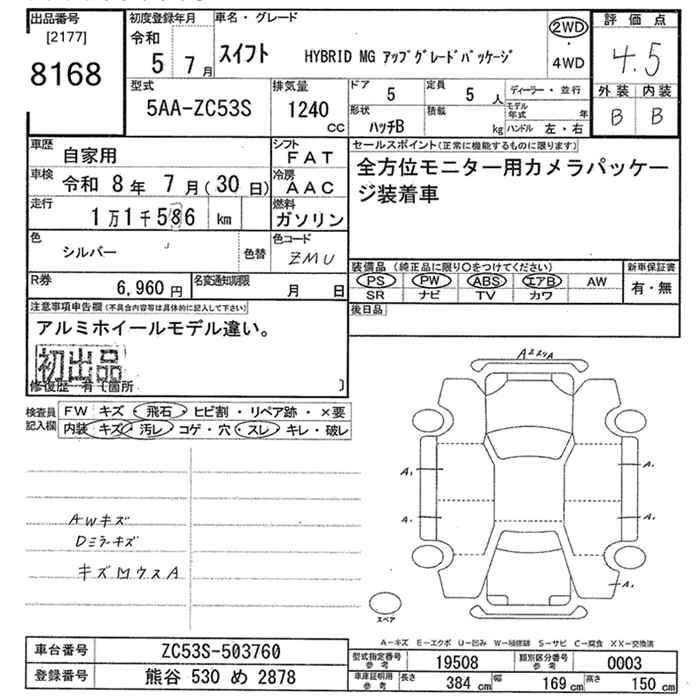 出品番号
[2177]
8168
初度登録年月
令和
5 7月
車名・グレード
スイフト HYBRID MG アップグレードパッケージ
2WD
・
4WD
評価点
4.5
外装 内装
B B
型式
5AA-ZC53S
排気量
1240
CC
ドア 5
定員 5 人
形状 ハッチB
積載 kg
ディーラー・並行
モデル年式 年
ハンドル 左・右
車歴 自家用
シフト FAT
車検 令和 8年 7月(30日)
冷房 AAC
走行 1万1千586 km
燃料 ガソリン
色 シルバー 色替
色コード ZMU
R券 6,960円
名変通知期限 月 日
セールスポイント(正常に機能するものに限ります)
全方位モニター用カメラパッケー
ジ装着車
装備品(純正品に限り○をつけてください)
PS PW ABS エアB AW
SR ナビ TV カワ
新車保証書
有・無
後日品
注意事項申告欄(不具合内容等は具体的に記入して下さい)
アルミホイールモデル違い。
初出品
修復歴 有〔箇所 〕
検査員
記入欄
FW キズ・飛石・ヒビ割・リペア跡・×要
内装 キズ・汚レ・コゲ・穴・スレ・キレ・破レ
AWキズ
Dミラーキズ
キズMウスA
A1
A1
A1
A1
A1
スペア
A-キズ E-エクボ U-凹み W-補修跡 S-サビ C-腐食 XX-交換済
車台番号 ZC53S-503760
登録番号 熊谷 530 め 2878
型式指定番号 参考 19508
類別区分番号 参考 0003
車庫証明用 参考 長さ 384 cm 幅 169 cm 高さ 150 cm